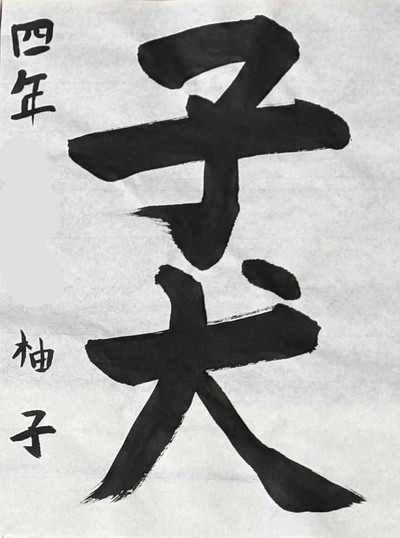 子犬
四年 柚子